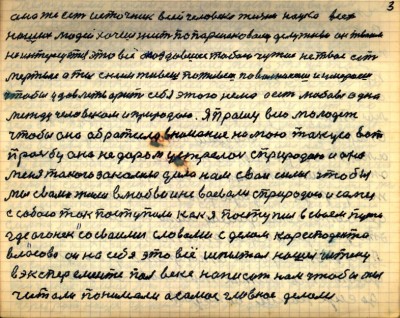 3
она же есть источник всей человека жизни наука всех
наших людей хочешь жить по паршековому должны он твоим
не интересуется это всё создавшие тобою чужие не твое есть
мертвое а ты с ним живешь потихоньку и умираешь
чтобы удовлетворить себя этого мало а есть любовь одна
между человеком и природою. Я прошу вас молодеж
чтобы она обратила внимание на мою такую вот
просьбу она не даром устрелась с природою и она
меня такого закалила дала нам свои силы чтобы
мы с вами жили в любви и не воевали с природою и сами
с собою так поступали как я поступил в своем пути
где огонек со своими словами с делом корреспондента
Власова он на себя это всё испытал нашу истину
в эксперименте пол века написать нам чтобы мы
читали понимали а самое главное делали